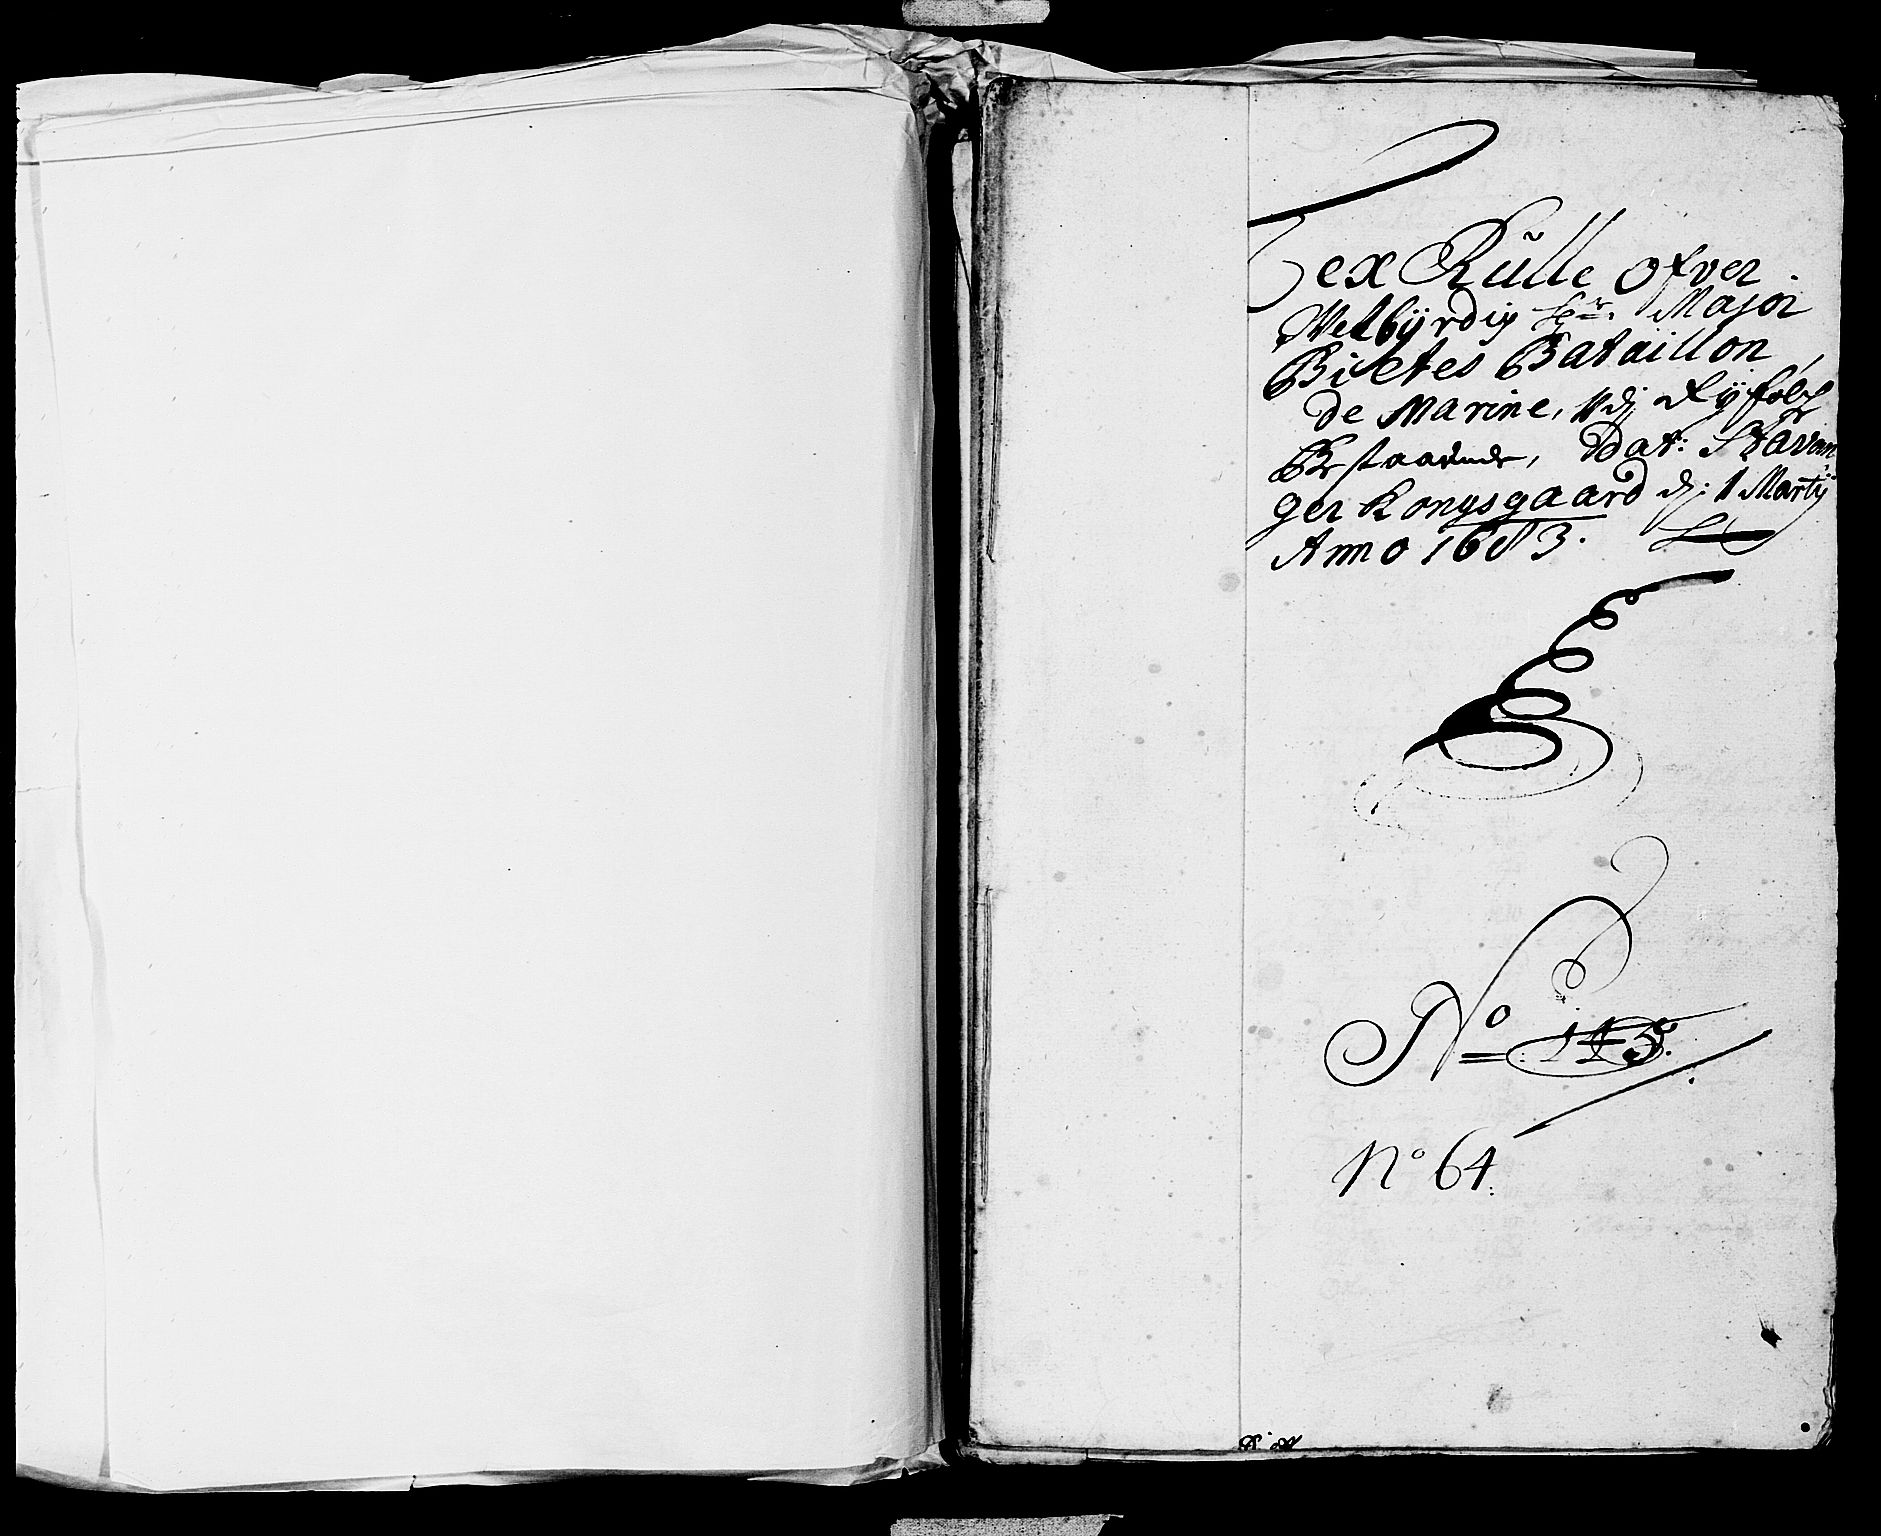 Lex Rulle ofver
Welbÿrdig Hr. Major
Biletes Bataillon
de Marine, udj
Bestaaende, Dat: Stavan
ger Kongsgaard d: 1 Martÿ
Anno 1683.
No 145.
No 64.